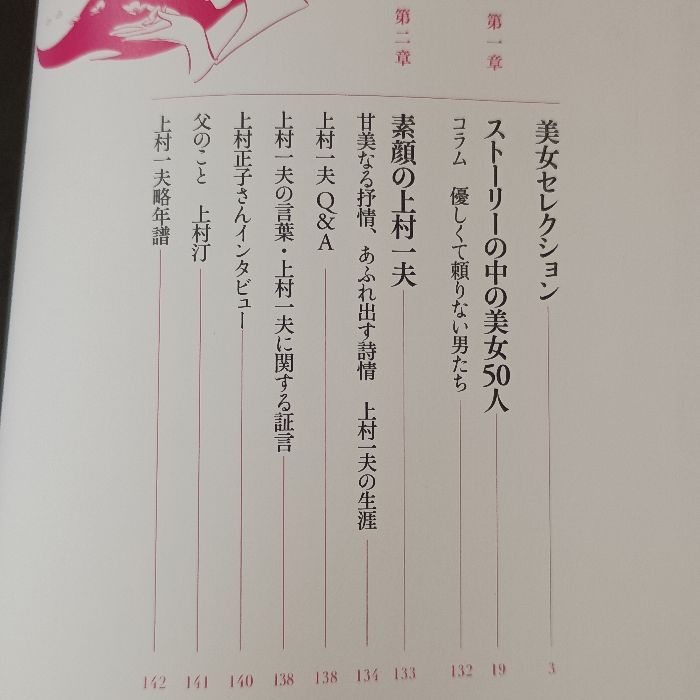 美女セレクション 3
第一章 ストーリーの中の美女50人 19
コラム 優しくて頼りない男たち 132
第二章 素顔の上村一夫 133
甘美なる抒情、あふれ出す詩情 上村一夫の生涯 134
上村一夫 Q&A 138
上村一夫の言葉・上村一夫に関する証言 138
上村正子さんインタビュー 140
父のこと 上村汀 141
上村一夫略年譜 142